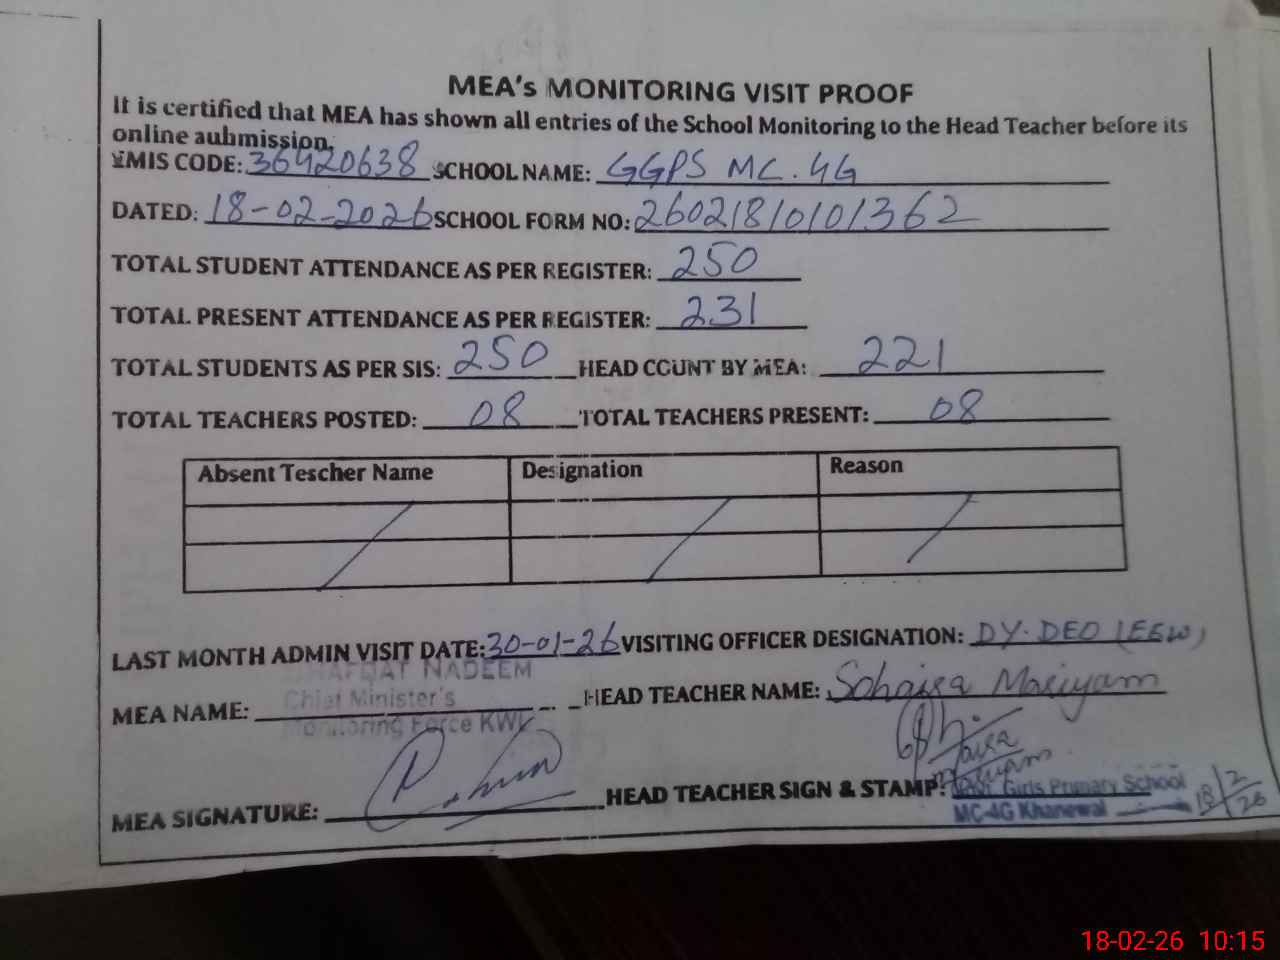 MEA's MONITORING VISIT PROOF
It is certified that MEA has shown all entries of the School Monitoring to the Head Teacher before its
online aubmission.
EMIS CODE: 36420638 SCHOOL NAME: GGPS MC. 4G
DATED: 18-02-2026 SCHOOL FORM NO: 26021810101362
TOTAL STUDENT ATTENDANCE AS PER REGISTER: 250
TOTAL PRESENT ATTENDANCE AS PER REGISTER: 231
TOTAL STUDENTS AS PER SIS: 250 HEAD COUNT BY MEA: 221
TOTAL TEACHERS POSTED: 08 TOTAL TEACHERS PRESENT: 08
Absent Tescher Name Designation Reason
LAST MONTH ADMIN VISIT DATE: 30-01-26 VISITING OFFICER DESIGNATION: DY. DEO (EEW)
NADEEM
Chief Minister's
MEA NAME: HEAD TEACHER NAME: Mariyam
Monitoring Force KWL
MEA SIGNATURE: HEAD TEACHER SIGN & STAMP:
Girls Primary School
MC-4G Khanewal 18/2/26
18-02-26 10:15